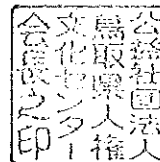 公益社団法人
鳥取県人権
文化センター
会長之印